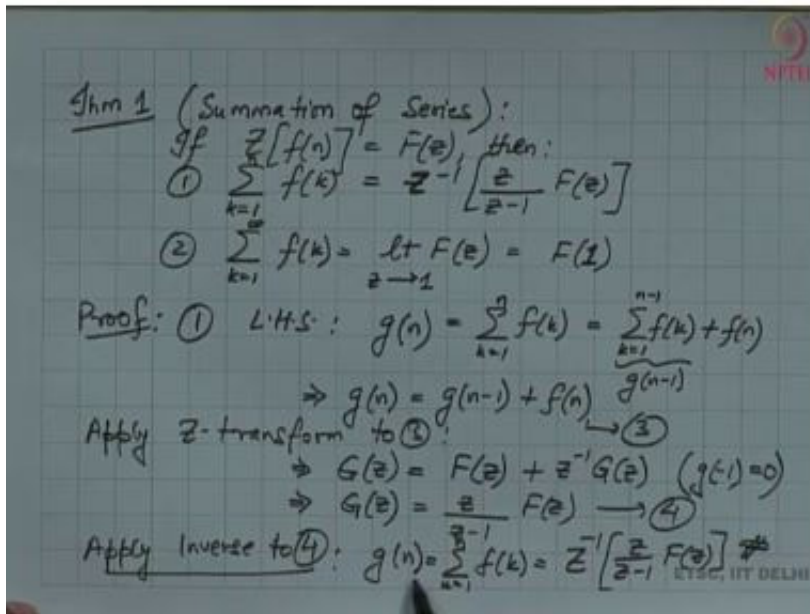 NPTEL
Thm 1 (Summation of Series):
If Z[f(n)] = F(z), then:
① ∑_{k=1}^{n} f(k) = z^{-1} [z/(z-1) F(z)]
② ∑_{k=1}^{∞} f(k) = lt_{z→1} F(z) = F(1)
Proof: ① L.H.S.: g(n) = ∑_{k=1}^{n} f(k) = ∑_{k=1}^{n-1} f(k) + f(n)
g(n-1)
⇒ g(n) = g(n-1) + f(n) → ③
Apply Z-transform to ③:
⇒ G(z) = F(z) + z^{-1} G(z) (g(-1)=0)
⇒ G(z) = z/(z-1) F(z) → ④
Apply Inverse to ④: g(n) = ∑_{k=1}^{n} f(k) = Z^{-1} [z/(z-1) F(z)]
ETSC, IIT DELHI